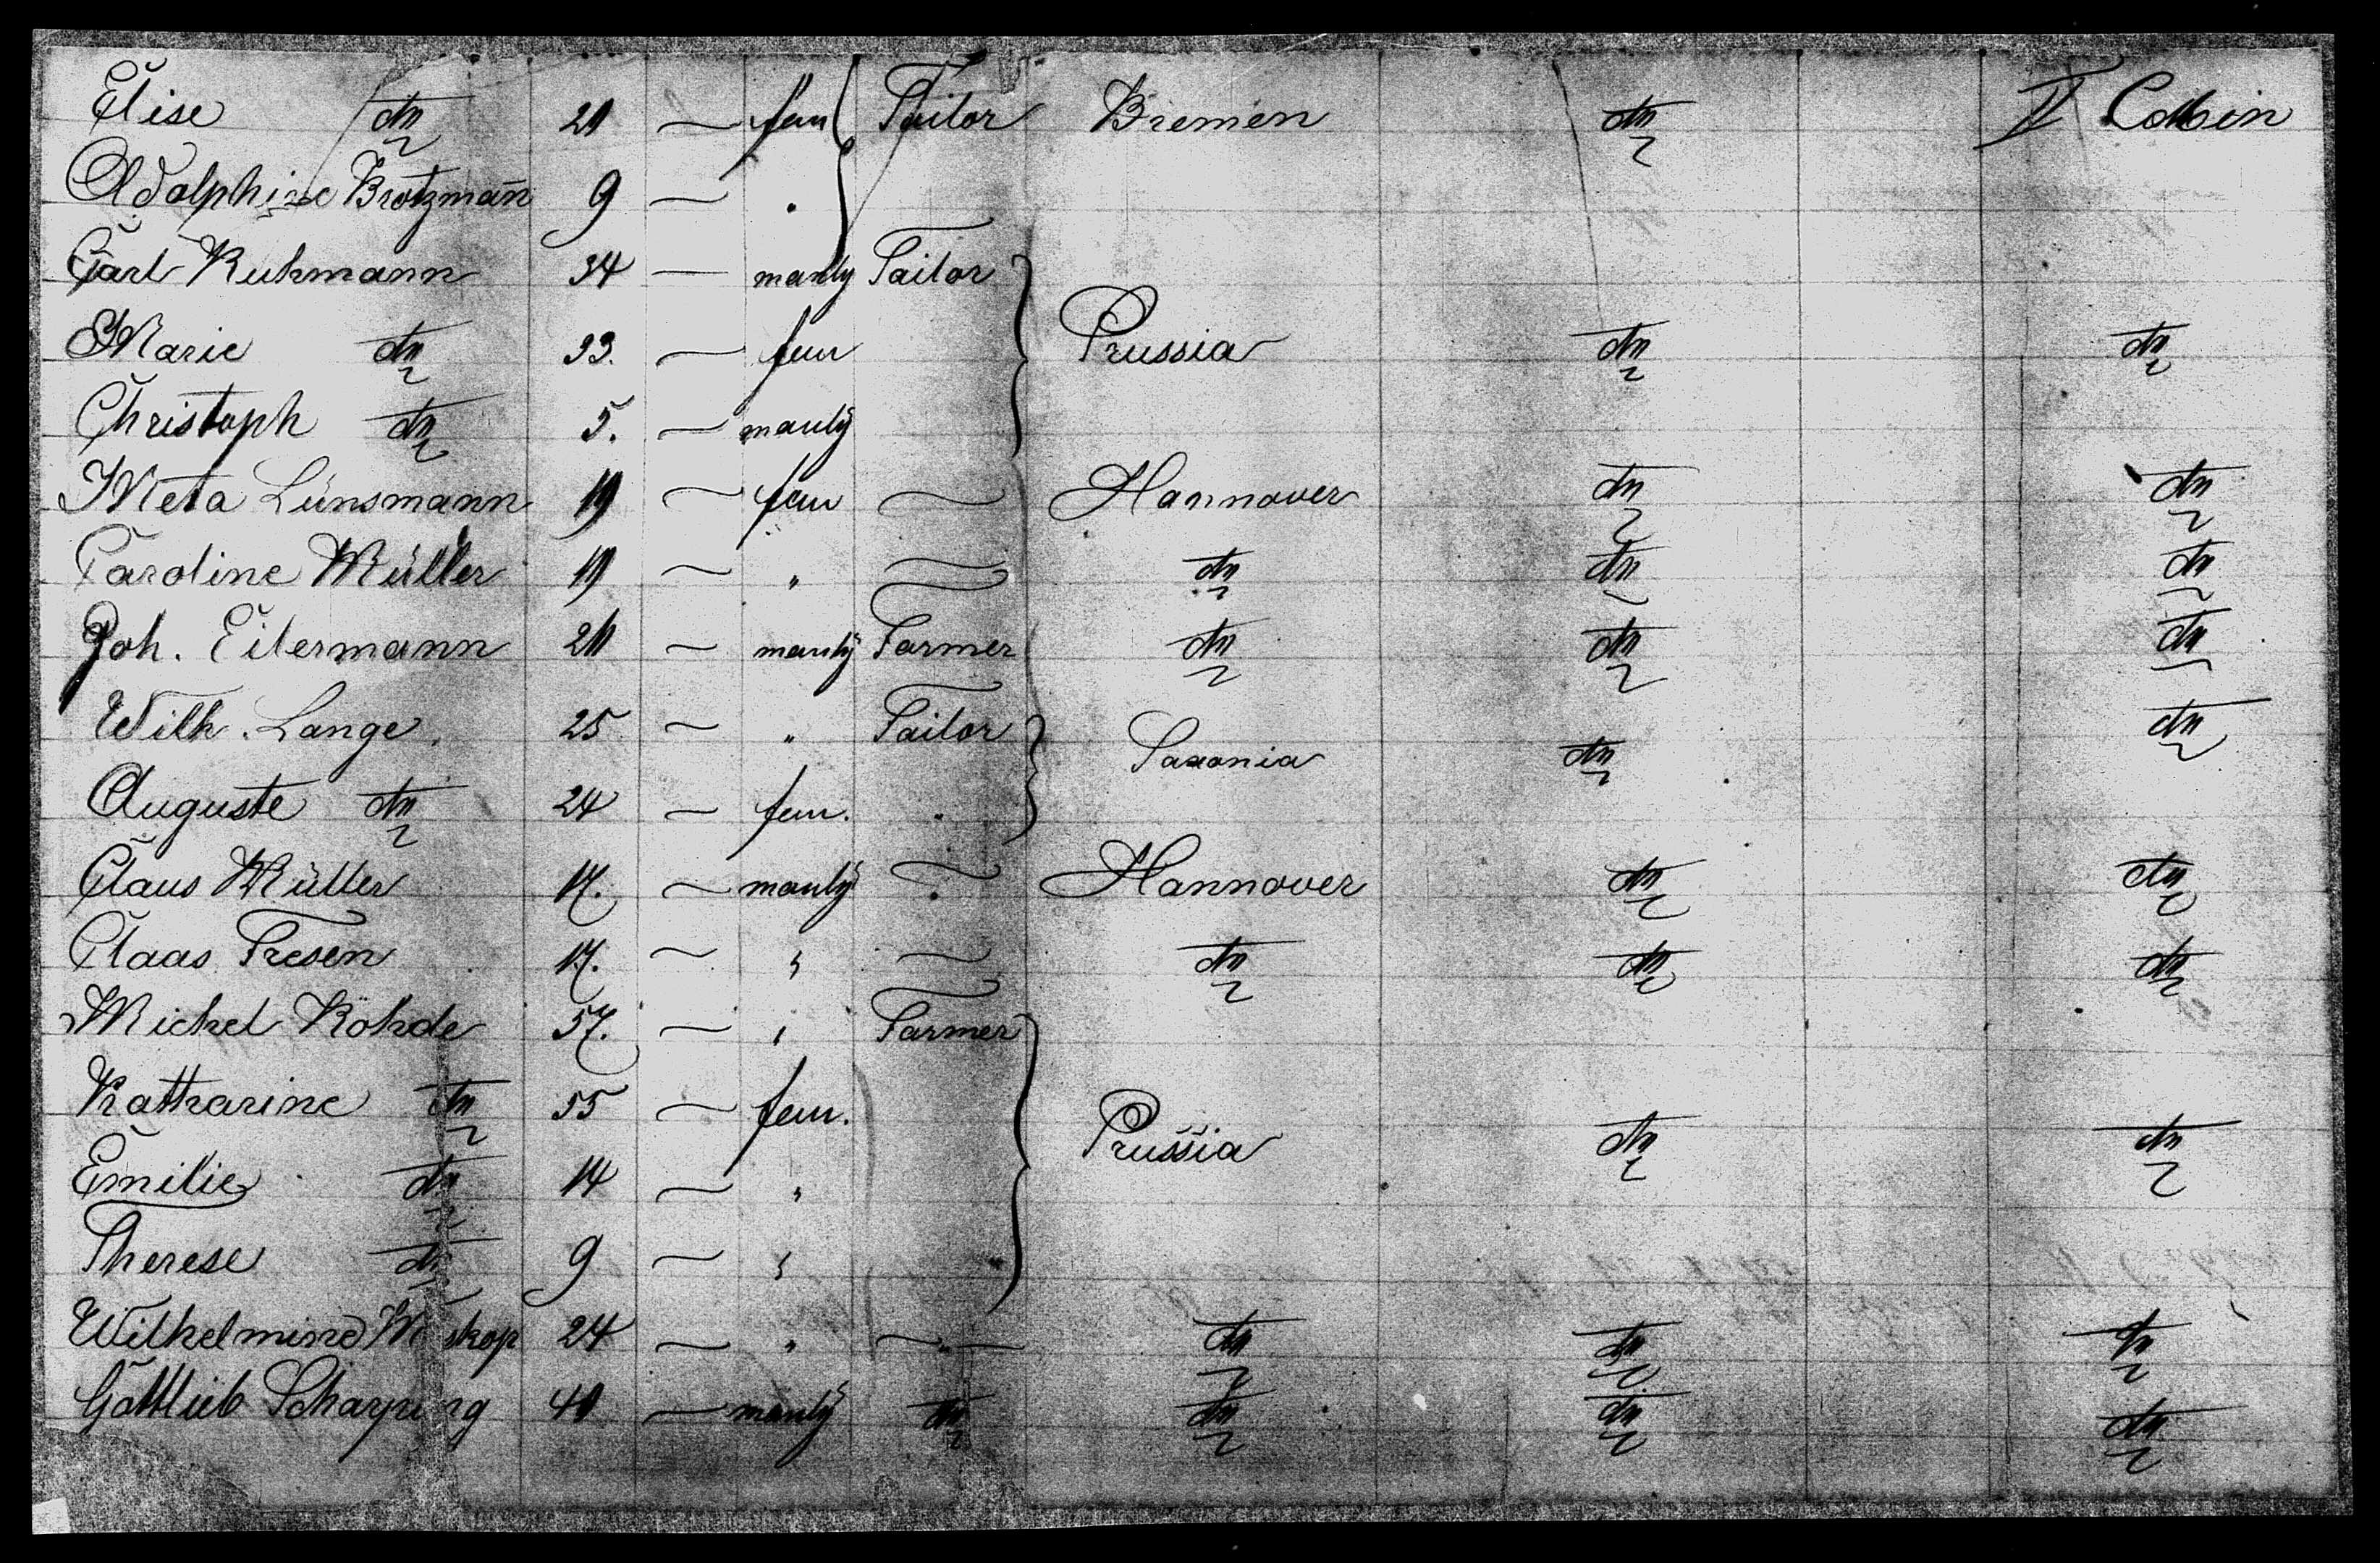 Elise do 20 — fem Tailor Bremen do II Cabin
Adolphine Brotzmann 9 — "
Carl Kuhmann 34 — manly Tailor
Marie do 33. — fem Prussia do do
Christoph do 5. — manly
Meta Lünsmann 19 — fem — Hannover do do
Caroline Müller 19 — " — do do do
Joh. Eilermann 20 — manly Farmer do do do
Wilh. Lange 25 — " Tailor Saxonia do do
Auguste do 24 — fem. "
Claus Müller 17. — manly — Hannover do do
Claas Fresen 17. — " — do do do
Michel Röhde 57. — " Farmer
Kattharine do 55 — fem. Prussia do do
Emilie do 14 — "
Therese do 9 — "
Wilhelmine 24 — " — do do do
Gottlieb 40 — manly do do do do